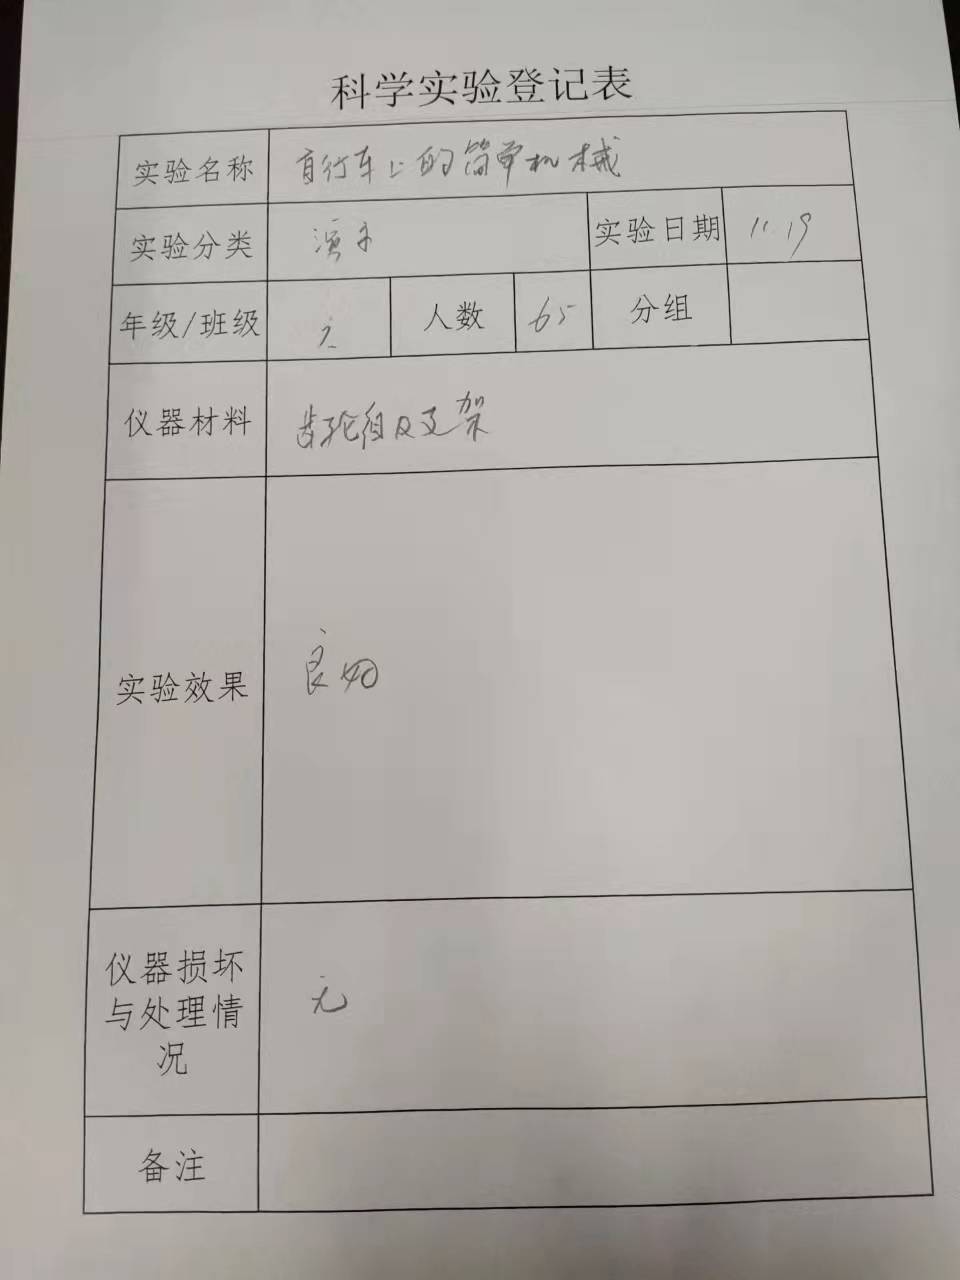 科学实验登记表
实验名称 自行车上的简单机械
实验分类 演示 实验日期 11.19
年级/班级 六 人数 65 分组
仪器材料 齿轮组及支架
实验效果 良好
仪器损坏
与处理情
况
无
备注